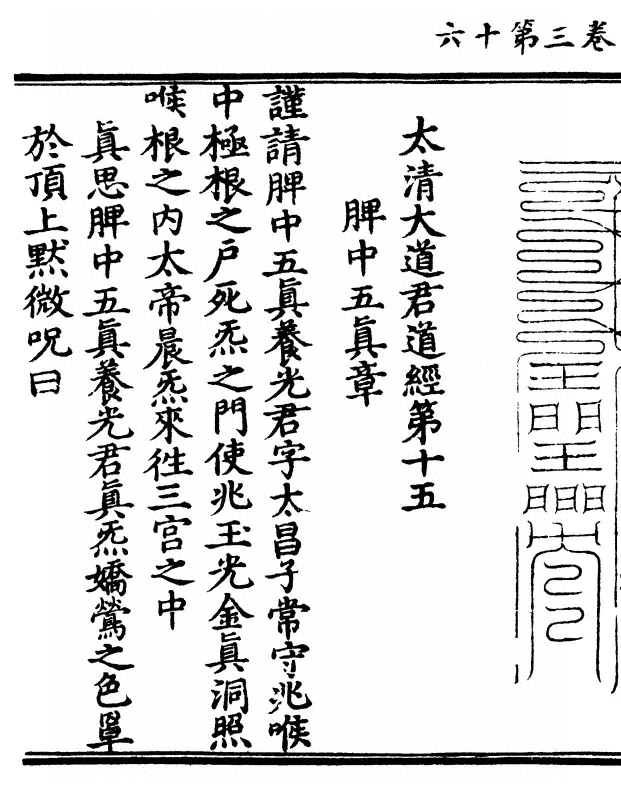 六十第三卷
太清大道君道經第十五
脾中五眞章
謹請脾中五眞養光君字太昌子常守兆喉
中極根之戶死炁之門使兆玉光金眞洞照
喉根之內太帝晨炁來徃三宫之中
眞思脾中五眞養光君眞炁嬌鶯之色單
於頂上默微呪曰